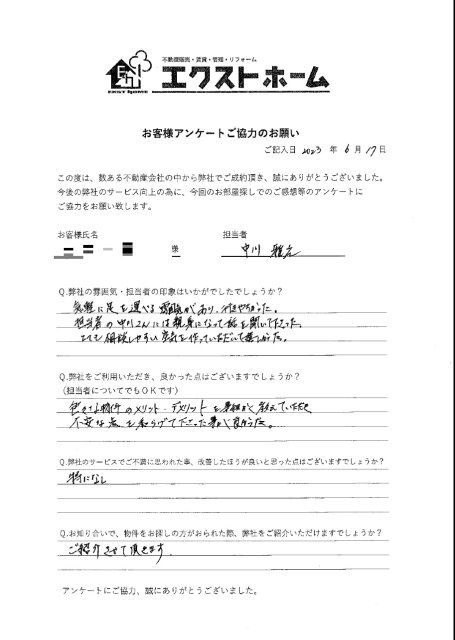 不動産販売・賃貸・管理・リフォーム
エクストホーム
EXST HOME
お客様アンケートご協力のお願い
ご記入日 2023 年 6 月 17 日
この度は、数ある不動産会社の中から弊社でご成約頂き、誠にありがとうございました。
今後の弊社のサービス向上の為に、今回のお部屋探しでのご感想等のアンケートに
ご協力をお願い致します。
お客様氏名
様
担当者
中川
Q.弊社の雰囲気・担当者の印象はいかがでしたでしょうか?
気軽に足を運べる雰囲気があり、
担当者の中川さんには親身になって話を聞いて下さった。
とても相談しやすい空気を作っていただいて
Q.弊社をご利用いただき、良かった点はございますでしょうか?
(担当者についてでもOKです)
物件のメリット・デメリットを 教えていただき
不安な点を和らげて下さった事が良かった。
Q.弊社のサービスでご不満に思われた事、改善したほうが良いと思った点はございますでしょうか?
特になし
Q.お知り合いで、物件をお探しの方がおられた際、弊社をご紹介いただけますでしょうか?
ご紹介させて頂きます
アンケートにご協力、誠にありがとうございました。